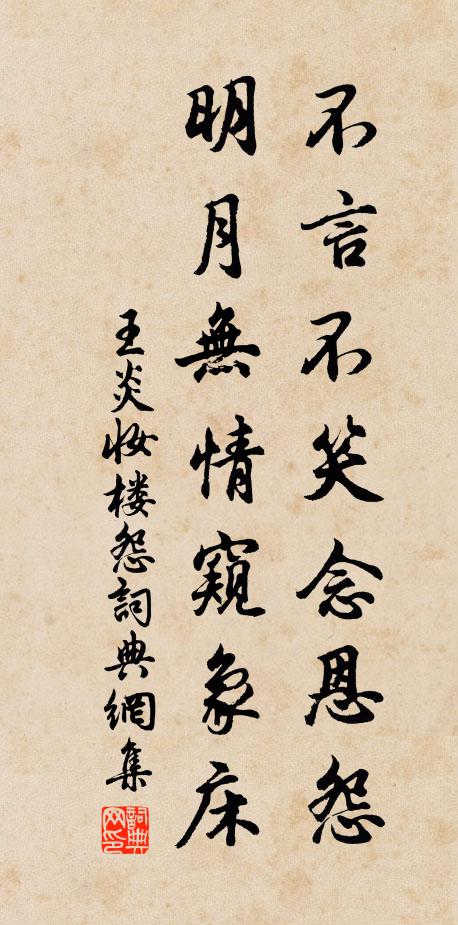 不言不笑念恩怨
明月無情窺象床
王炎妆楼怨詞典網集
詞典网印